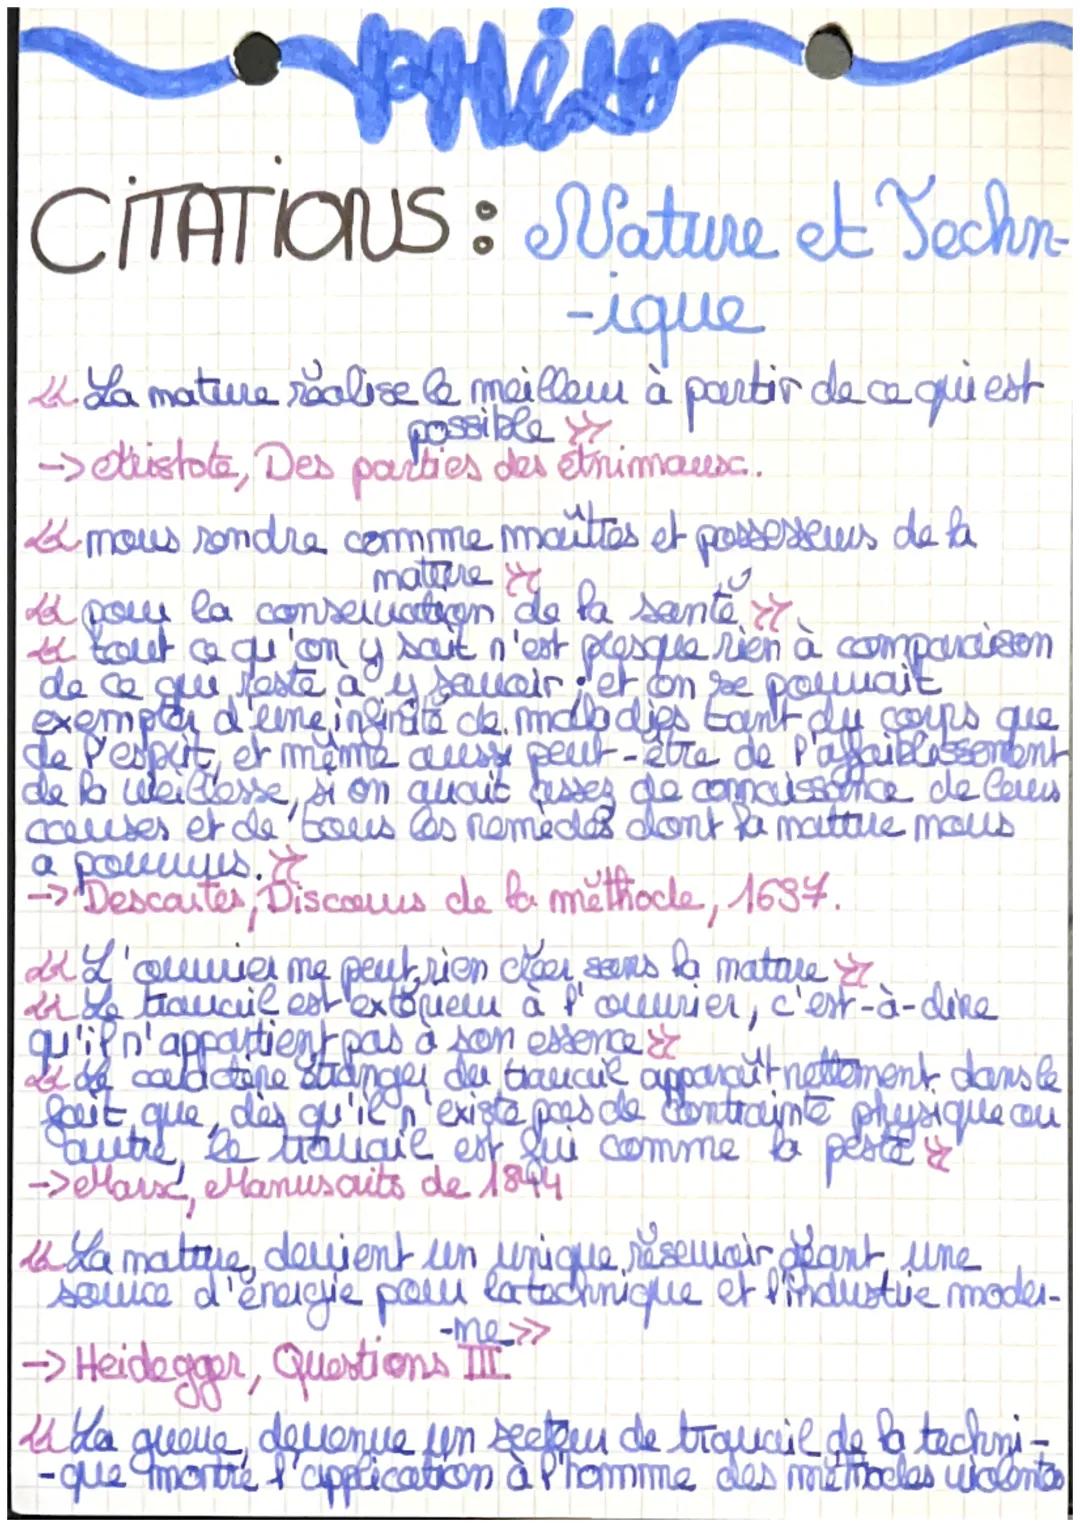 PHilo
CITATIONS : Nature et Techn-
-ique
« La nature réalise le meilleur à partir de ce qui est
possible »
-> Aristote, Des parties des Animaux.
« nous rendre comme maîtres et possesseurs de la
nature »
« pour la conservation de la santé »
« tout ce qu'on y sait n'est presque rien à comparaison
de ce qui reste à y savoir ; et on se pourrait
exempter d'une infinité de maladies tant du corps que
de l'esprit, et même aussi peut-être de l'affaiblissement
de la vieillesse, si on avait assez de connaissance de leurs
causes et de tous les remèdes dont la nature nous
a pourvus. »
-> Descartes, Discours de la méthode, 1637.
« L'ouvrier ne peut rien créer sans la nature »
« Le travail est extérieur à l'ouvrier, c'est-à-dire
qu'il n'appartient pas à son essence »
« Le caractère étranger du travail apparaît nettement dans le
fait que, dès qu'il n'existe pas de contrainte physique ou
autre, le travail est fui comme la peste »
-> Marx, Manuscrits de 1844
« La nature, devient un unique réservoir géant, une
source d'énergie pour la technique et l'industrie moder-
-ne »
-> Heidegger, Questions III.
« La guerre, devenue un secteur de travail de la techni-
-que montre l'application à l'homme des méthodes violentes